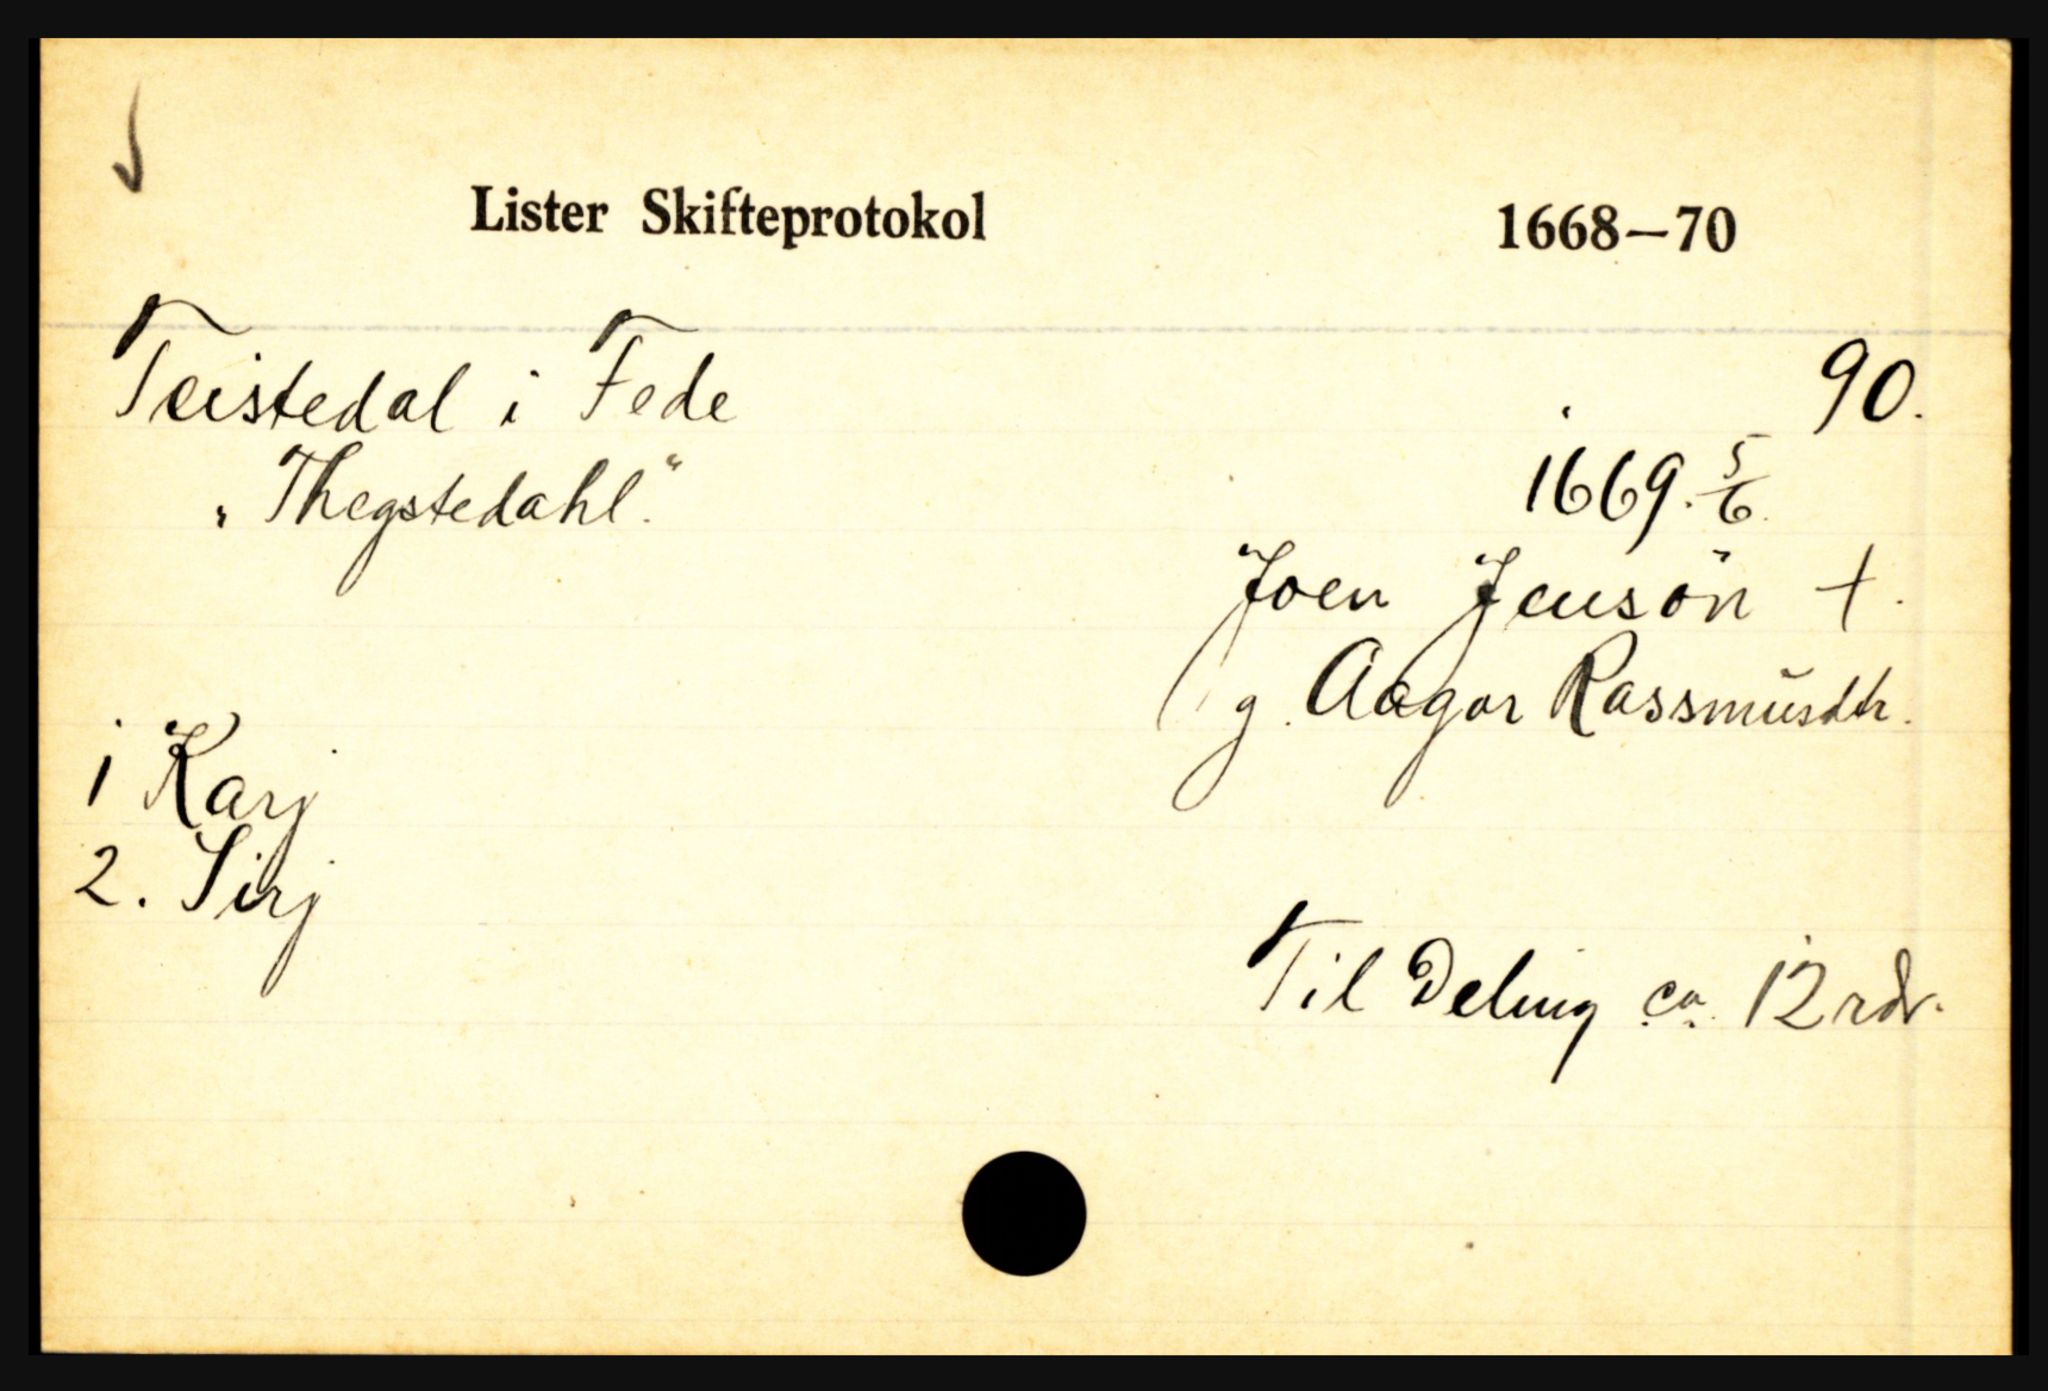 Lister Skifteprotokol 1668—70
Teistedal i Fede 90.
„Thegstedahl." 1669. 5/6.
Joen Jensön +.
g. Aagor Rassmusdtr.
1 Karj
2. Sirj
Til Deling ca. 12 rdr.